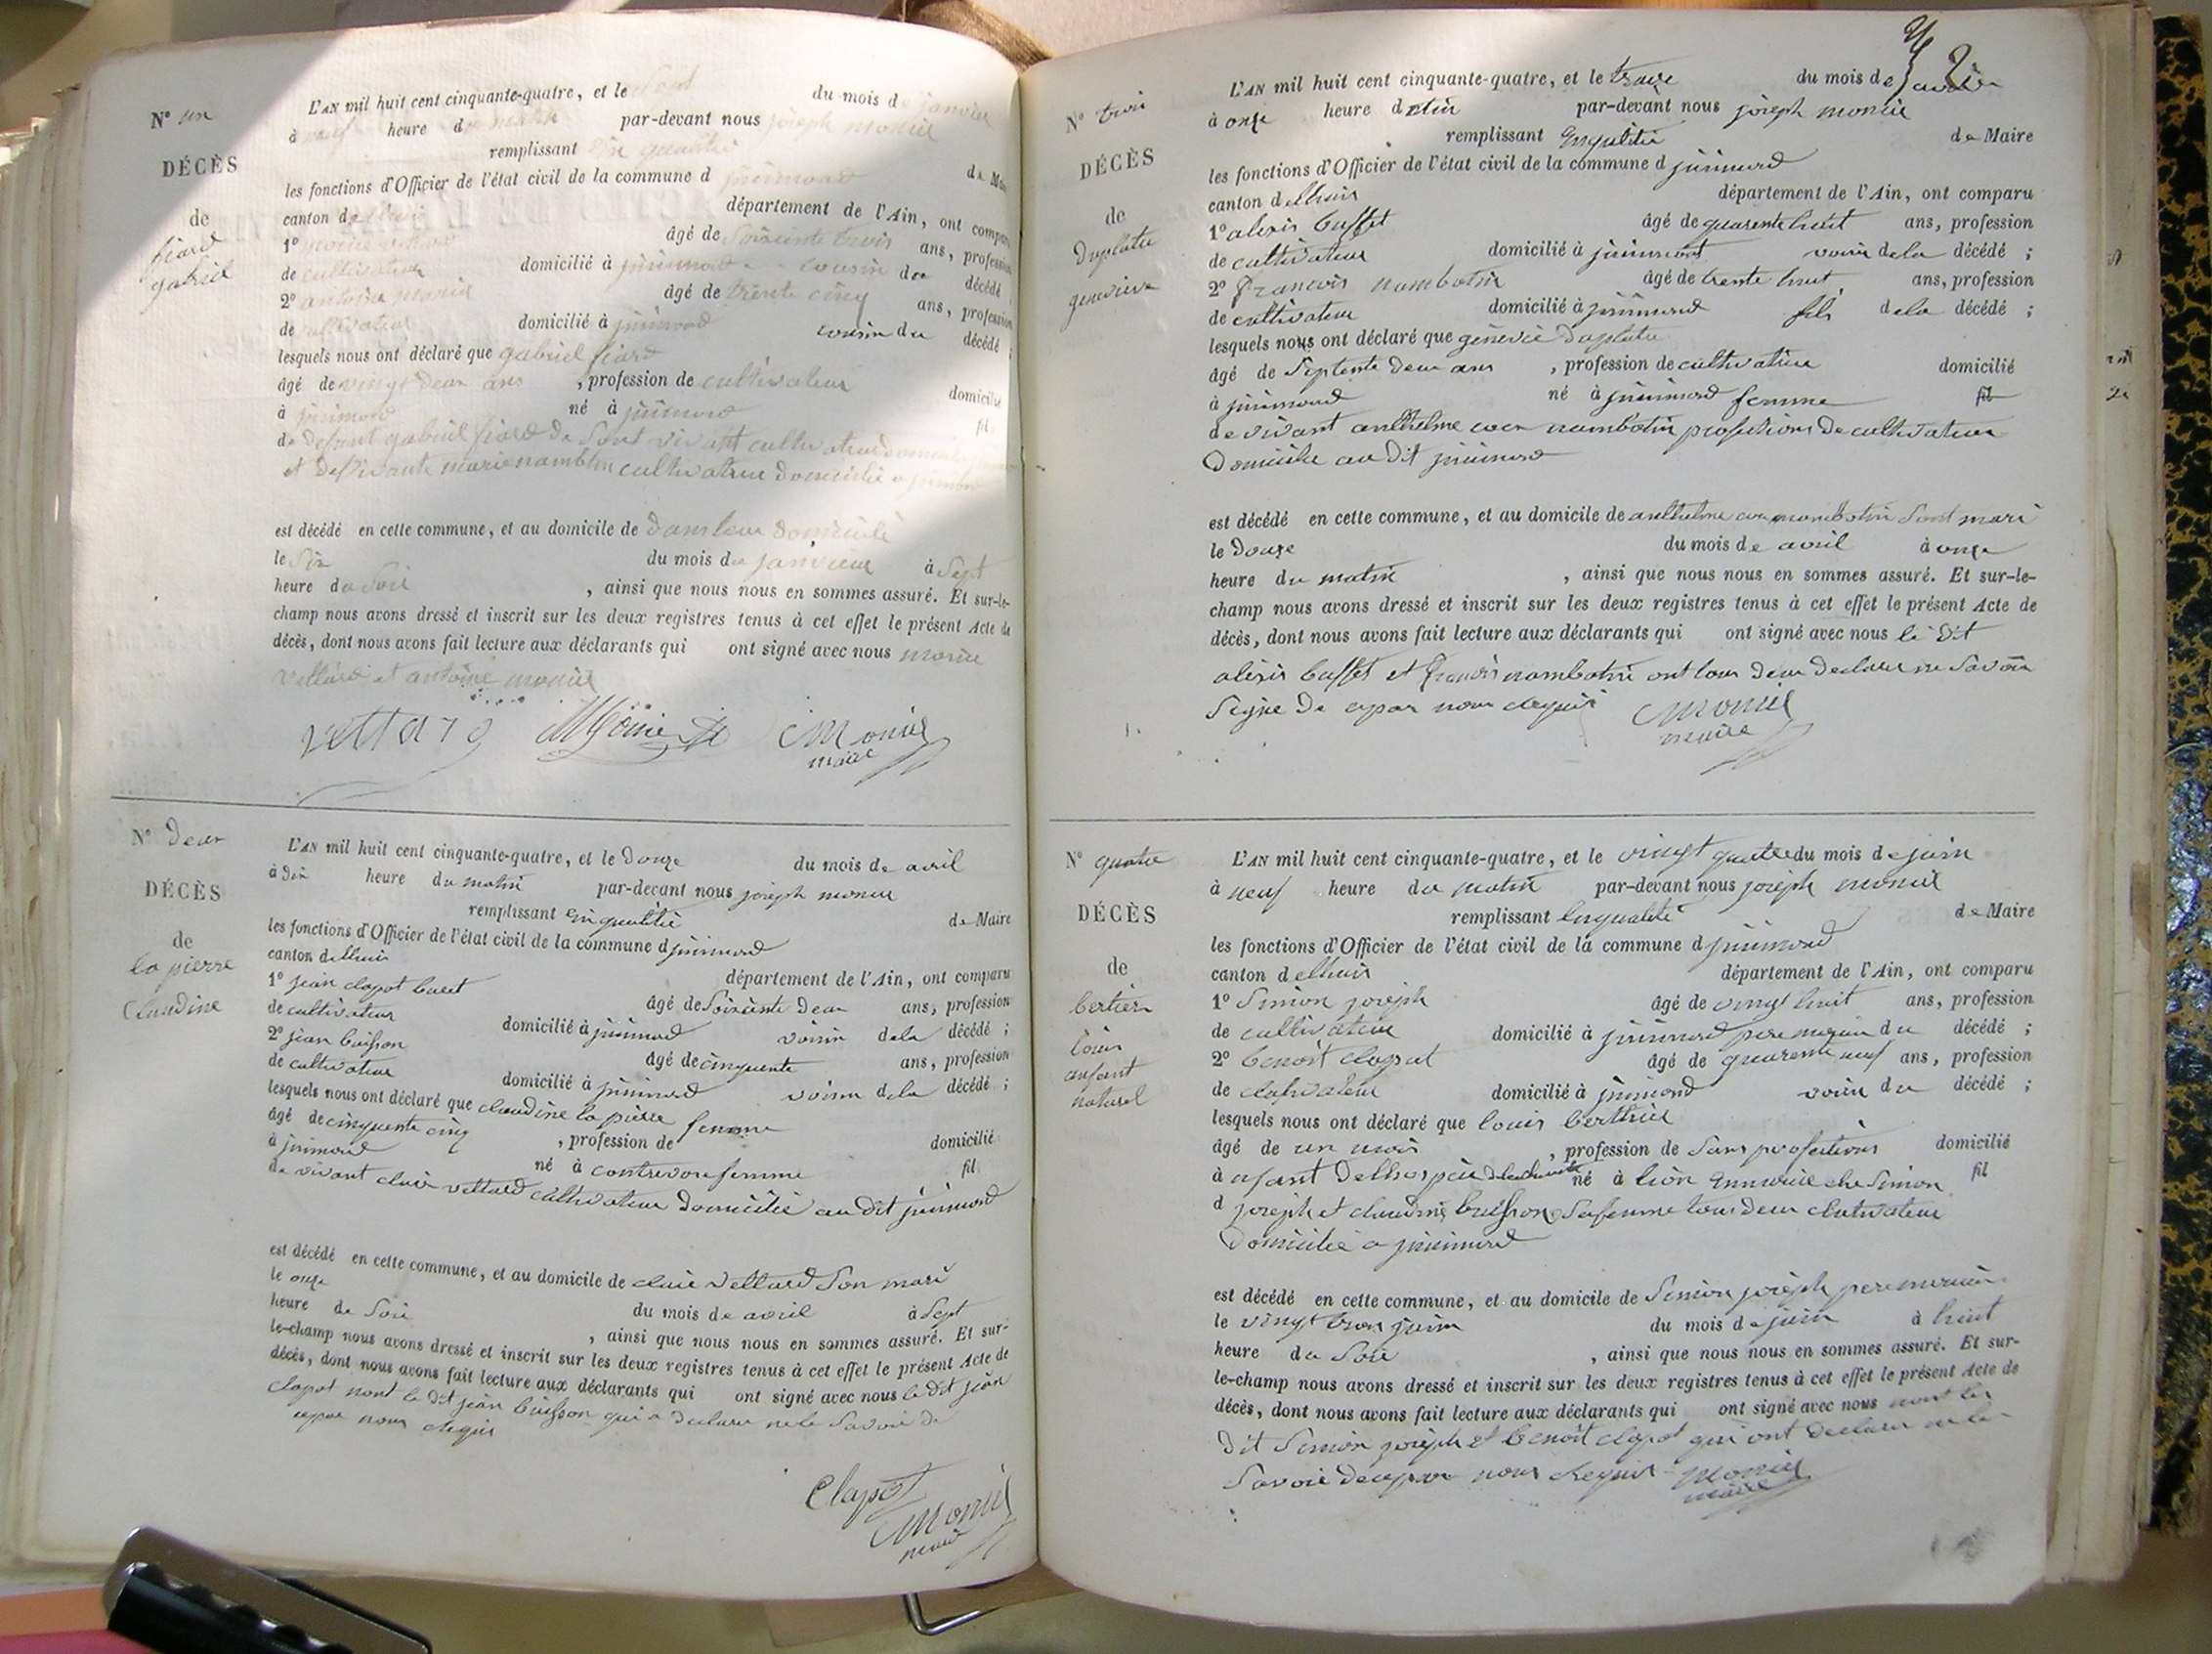 N° un
DÉCÈS
de
fiard
gabriel
L'AN mil huit cent cinquante-quatre, et le sept du mois de janvier
à neuf heure du matin par-devant nous joseph monier
remplissant en qualité de Maire
les fonctions d'Officier de l'état civil de la commune d jujurieux
canton de lhuis département de l'Ain, ont comparu
1° âgé de soixante trois ans, profession
de cultivateur domicilié à cousin du décédé
2° antoine monier âgé de trente cinq ans, profession
de cultivateur domicilié à cousin du décédé ;
lesquels nous ont déclaré que gabriel fiard
âgé de vingt deux ans , profession de cultivateur domicilié
à né à fil
de defunt gabriel fiard de sont vivant cultivateur
et desivante marie nambotin cultivatrice domicilié a
est décédé en cette commune, et au domicile de dans leur domicile
le six du mois de janvier à sept
heure du soir , ainsi que nous nous en sommes assuré. Et sur-le-
champ nous avons dressé et inscrit sur les deux registres tenus à cet effet le présent Acte de
décès, dont nous avons fait lecture aux déclarants qui ont signé avec nous
vettard et antoine monier
vettard Monier Monier
maire
N° deux
DÉCÈS
de
la pierre
Claudine
L'AN mil huit cent cinquante-quatre, et le douze du mois de avril
à dix heure du matin par-devant nous joseph monier
remplissant en qualité de Maire
les fonctions d'Officier de l'état civil de la commune d
canton de lhuis département de l'Ain, ont comparu
1° jean clapot buset âgé de soixante deux ans, profession
de cultivateur domicilié à voisin de la décédé ;
2° jean buisson âgé de cinquente ans, profession
de cultivateur domicilié à voisin de la décédé ;
lesquels nous ont déclaré que claudine la pierre femme
âgé de cinquente cinq , profession de domicilié
à né à contrevose femme fil
de vivant claire vettard cultivateur domicilié au dit
est décédé en cette commune, et au domicile de claire vettard son mari
le onze du mois de avril à sept
heure de soir , ainsi que nous nous en sommes assuré. Et sur-
le-champ nous avons dressé et inscrit sur les deux registres tenus à cet effet le présent Acte de
décès, dont nous avons fait lecture aux déclarants qui ont signé avec nous le dit jean
clapot nont le dit jean buisson qui a declare ne le savoir de
cepar nous requis
Clapot
Monier
maire
2
N° trois
DÉCÈS
de
Duplatre
genevieve
L'AN mil huit cent cinquante-quatre, et le treize du mois de
à onze heure par-devant nous joseph monier
remplissant en qualité de Maire
les fonctions d'Officier de l'état civil de la commune d
canton de lhuis département de l'Ain, ont comparu
1° alexis buffet âgé de quarente huit ans, profession
de cultivateur domicilié à voisin de la décédé ;
2° francois nambotin âgé de trente huit ans, profession
de cultivateur domicilié à fils de la décédé ;
lesquels nous ont déclaré que duplatre
âgé de septente deux ans , profession de cultivatrice domicilié
à né à femme fil
de vivant anthelme nambotin profections de cultivateur
domicilie au dit
est décédé en cette commune, et au domicile de anthelme nambotin sont mari
le douze du mois de avril à onze
heure du matin , ainsi que nous nous en sommes assuré. Et sur-le-
champ nous avons dressé et inscrit sur les deux registres tenus à cet effet le présent Acte de
décès, dont nous avons fait lecture aux déclarants qui ont signé avec nous le dit
alexis buffet et francois nambotin ont tous deux declare ne savoir
signe de cepar nous requis Monier
maire
N° quatre
DÉCÈS
de
bertier
louis
anfant
naturel
L'AN mil huit cent cinquante-quatre, et le vingt quatre du mois de juin
à neuf heure du matin par-devant nous joseph monier
remplissant en qualité de Maire
les fonctions d'Officier de l'état civil de la commune d
canton de lhuis département de l'Ain, ont comparu
1° Simon joseph âgé de vingt huit ans, profession
de cultivateur domicilié à pere du décédé ;
2° benoit clapot âgé de quarente neuf ans, profession
de domicilié à voisin du décédé ;
lesquels nous ont déclaré que louis berthier
âgé de un mois , profession de sans profections domicilié
à né à lion che Simon fil
d joseph et claudine buisson sa femme tous deux
domicilié a
est décédé en cette commune, et au domicile de Simon joseph pere
le vingt trois juin du mois de juin à huit
heure du soir , ainsi que nous nous en sommes assuré. Et sur-
le-champ nous avons dressé et inscrit sur les deux registres tenus à cet effet le présent Acte de
décès, dont nous avons fait lecture aux déclarants qui ont signé avec nous nont les
dit Simon joseph et benoit clapot qui ont declare ne le
savoir de cepar nous requis Monier
maire